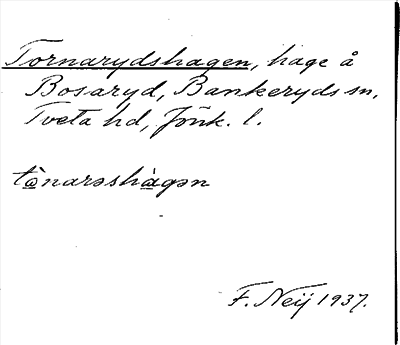 Tornarydshagen, hage å
Bosaryd, Bankeryds sn,
Tveta hd, Jönk. l.
tò̲narəshà̲gən
F. Neij 1937.